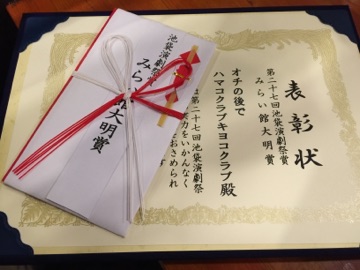 表彰状
第二十七回池袋演劇祭
みらい館大明賞
オチの後で
ハマコクラブキヨコクラブ殿
は第二十七回池袋演劇祭
実力をいかんなく
をおさめられ
す
池袋演劇祭
みらい館大明賞